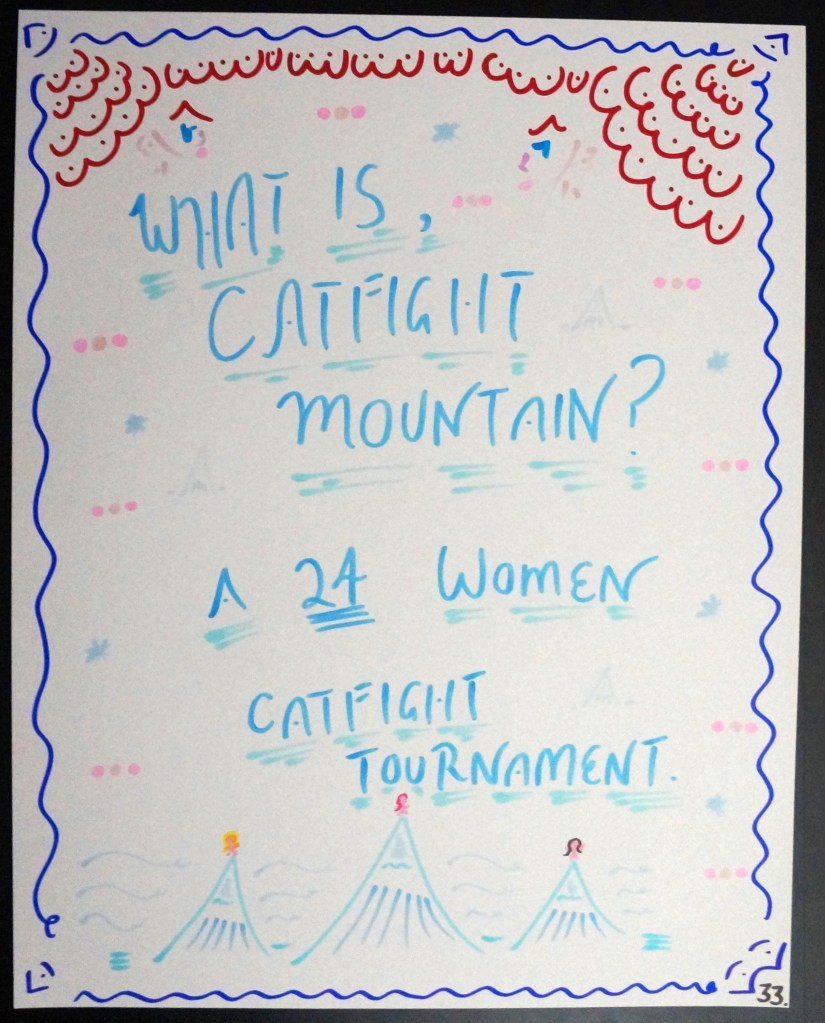 WHAT IS,
CATFIGHT
MOUNTAIN?
A 24 WOMEN
CATFIGHT
TOURNAMENT.
33.